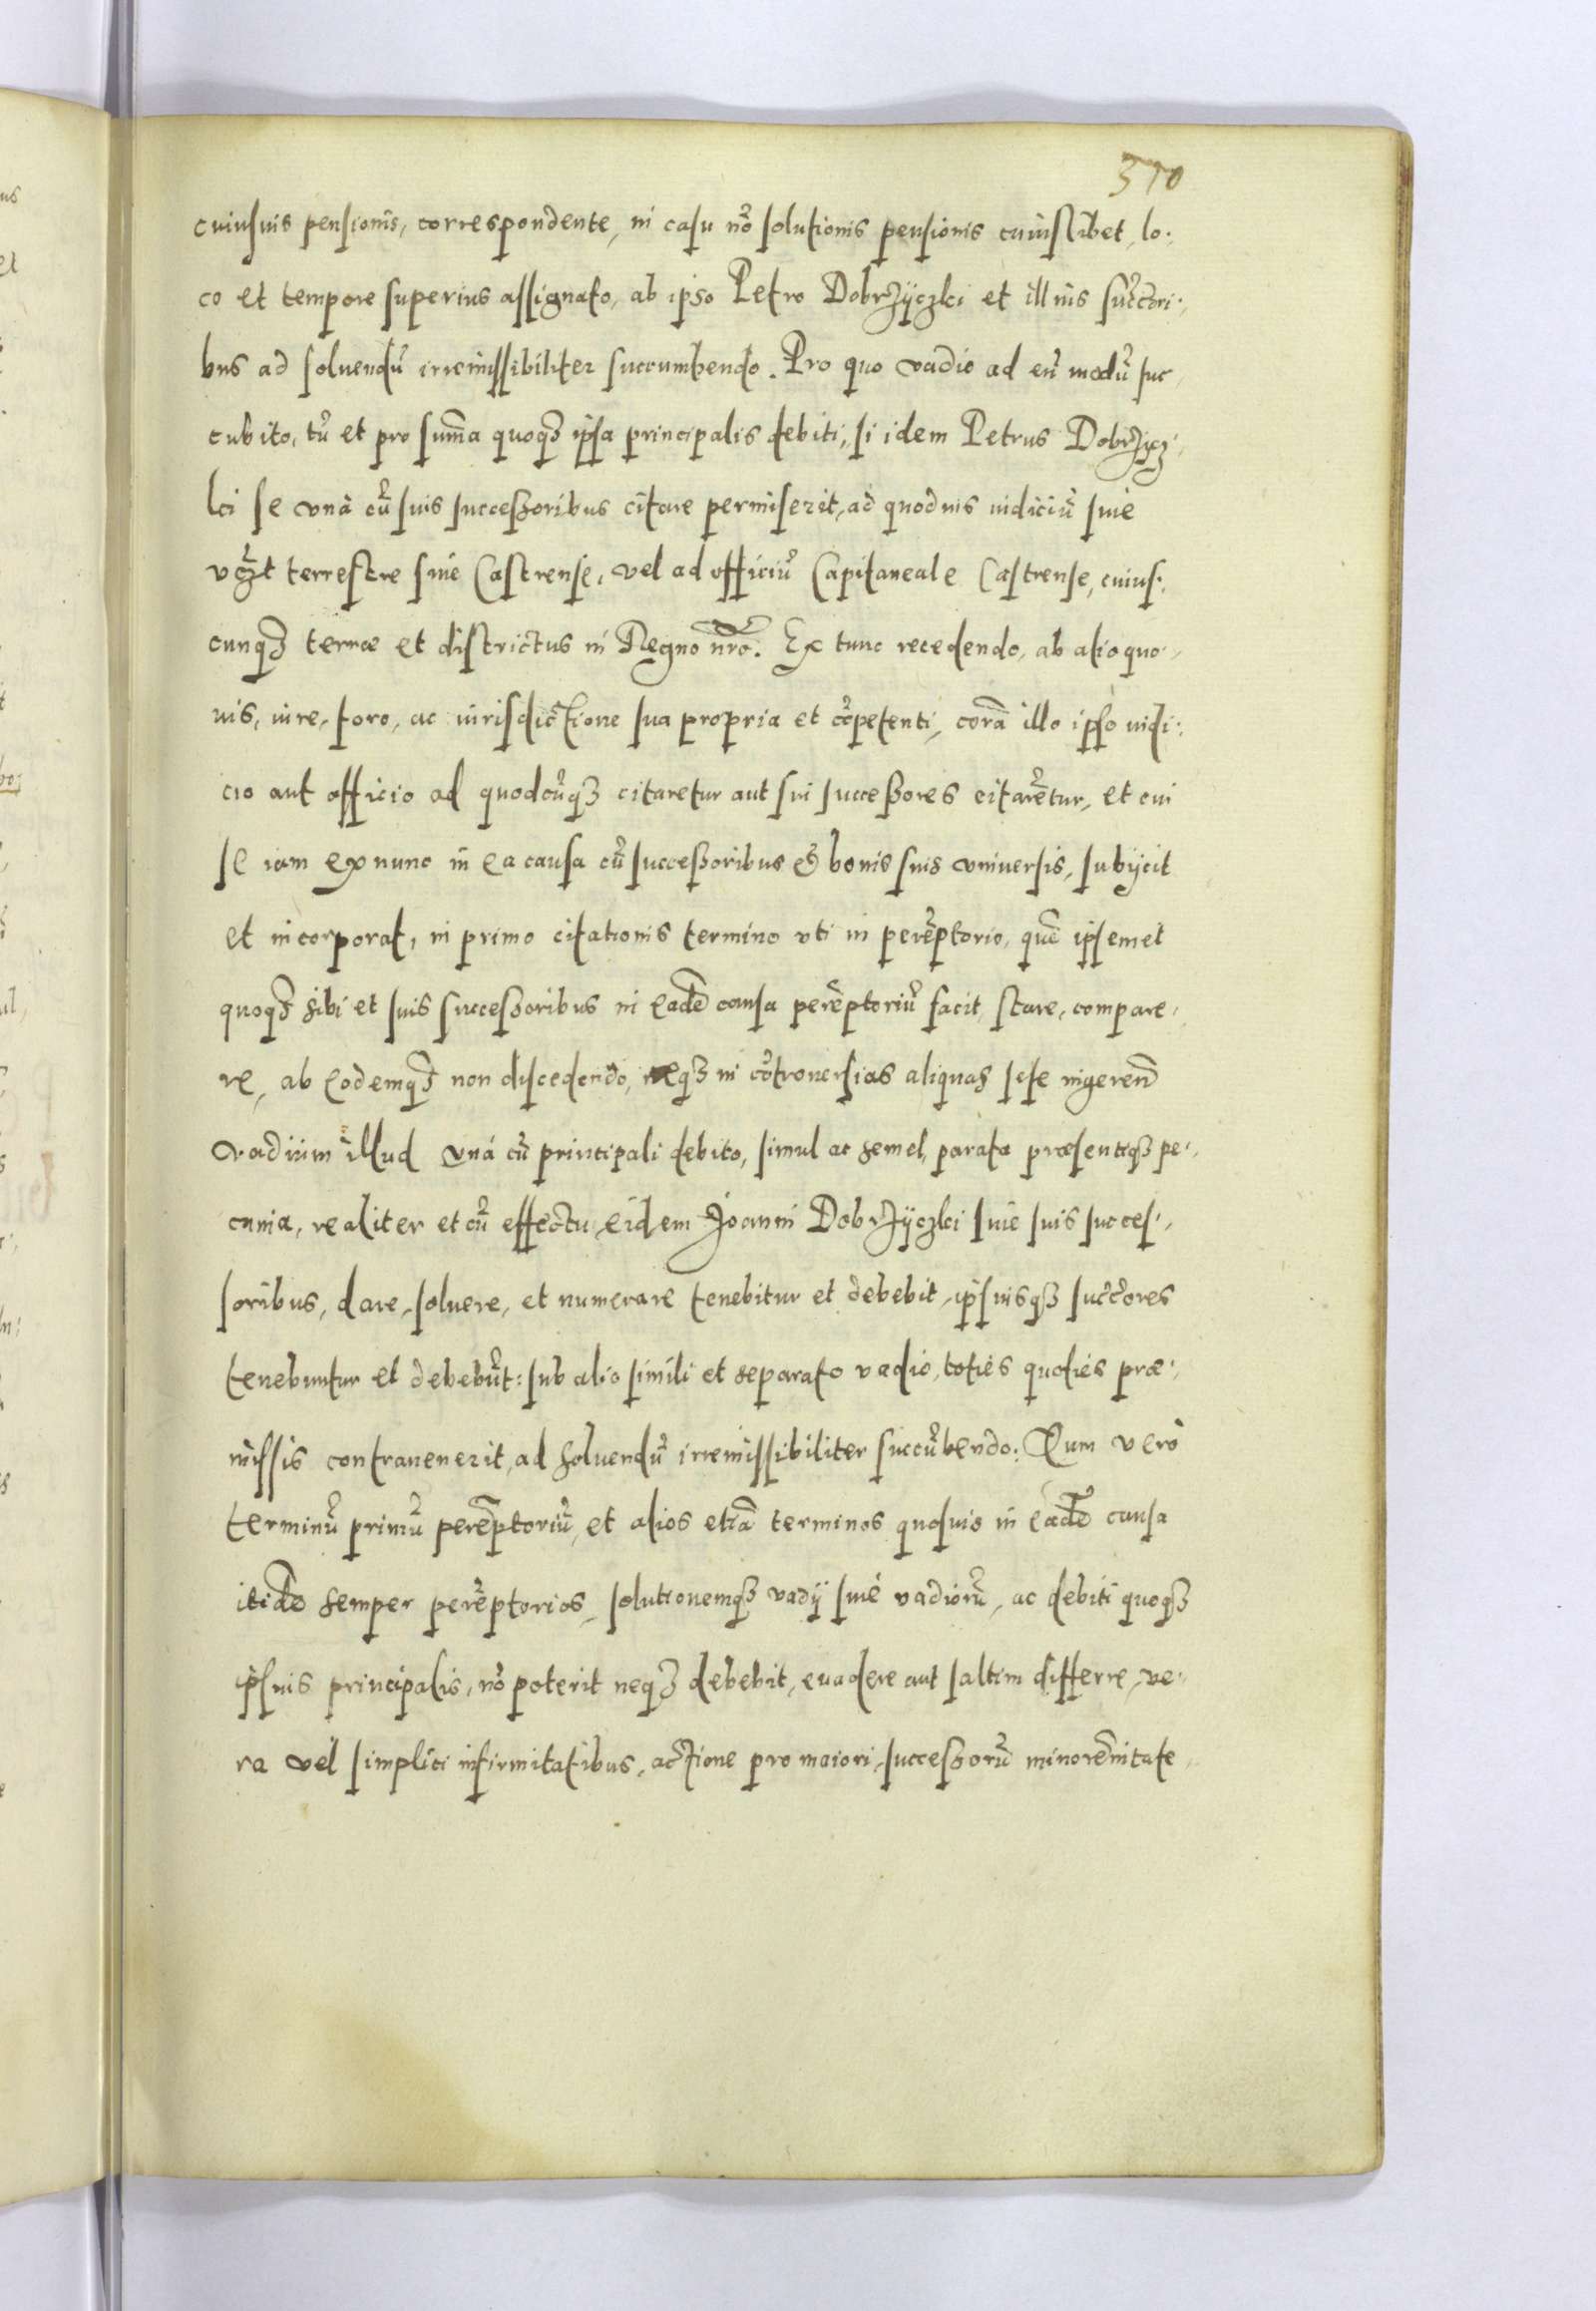 310
cuiusuis pensionis, correspondente, in casu nõ solutionis pensionis cuiuslibet, lo:
co et tempore superius assignato, ab ipso Petro Dobrżÿczki et illius succ̃ori:
bus ad soluendũ irremissibiliter succumbendo. Pro quo vadio ad eũ modũ suc
cubito, tũ et pro sum̃a quoqꝫ ipsa principalis debiti, si idem Petrus Dobrżycz:
ki se vnà cũ suis successoribus citare permiserit, ad quoduis iudiciũ siue
vcꝫt terrestre siue Castrense, vel ad officiũ Capitaneale Castrense, cuius:
cunqꝫ terrae et districtus in Regno nr̃o. Ex tunc recedendo, ab alio quo:
uis, iure, foro, ac iurisdictione sua propria et cõpetenti, corã illo ipso iudi:
cio aut officio ad quodcũqꝫ citaretur aut sui successores citarẽtur, et cui
se iam ex nunc in ea causa cũ successoribus & bonis suis vniuersis, subijcit
et incorporat, in primo citationis termino vti in perẽptorio, quẽ ipsemet
quoqꝫ sibi et suis successoribus in eadẽ causa perẽptoriũ facit, stare, compare:
re, ab eodemqꝫ non discedendo, neqꝫ in cõtrouersias aliquas sese ingerend̃
vadium illud vnà cũ principali debito, simul ac semel, parata praesentiqꝫ pe:
cunia, realiter et cũ effectu, eidem Joanni Dobrżÿczki siue suis succes:
soribus, dare, soluere, et numerare tenebitur et debebit, ipsiusqꝫ succ̃ores
tenebuntur et debebũt: sub alio simili et separato vadio, toties quoties prae:
missis contrauenerit, ad soluendũ irremissibiliter succũbendo: Quem verò
terminũ primũ perẽptoriũ, et alios etiã terminos quosuis in eadẽ causa
itidẽ semper perẽptorios, solutionemqꝫ vadij siue vadiorũ, ac debiti quoqꝫ
ipsius principalis, nõ poterit neqꝫ debebit, euadere aut saltim differre, ve:
ra vel simplici infirmitatibus, actione pro maiori, successorũ minorẽnitate